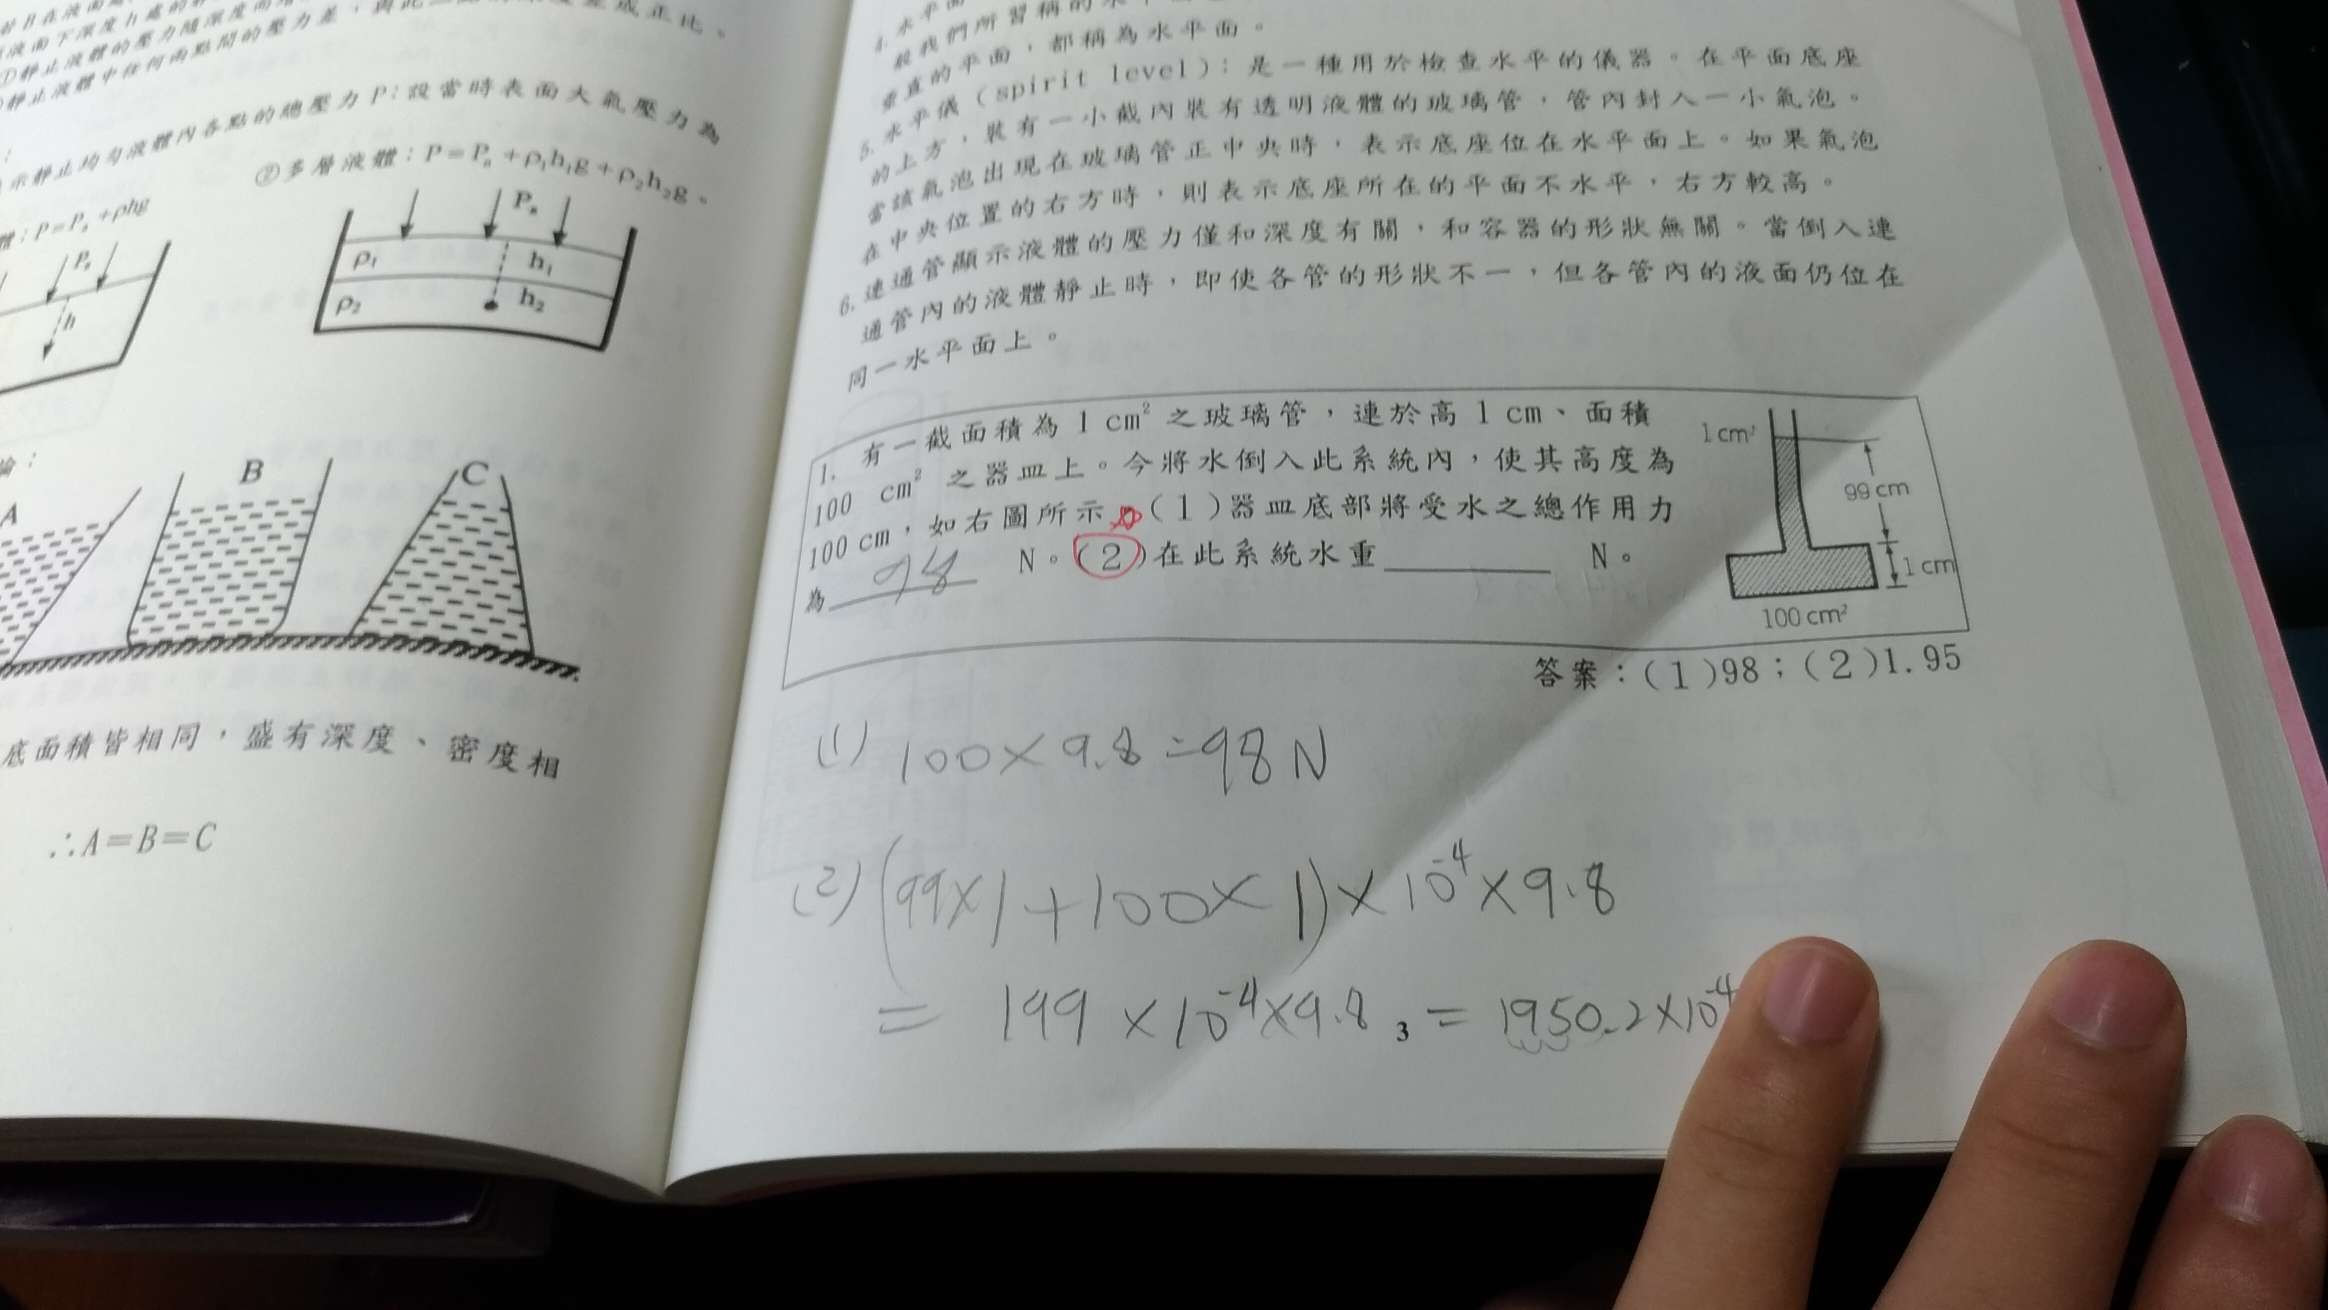 液面下深度h處的
①靜止液體的壓力隨深度而增
靜止液體中任何兩點間的壓力差，與此
成正比。
示靜止均勻液體內各點的總壓力P：設當時表面大氣壓力為
體：P=Pₐ+ρhg
②多層液體：P=Pₐ+ρ₁h₁g+ρ₂h₂g。
Pₐ
h
Pₐ
ρ₁
h₁
ρ₂
h₂
論：
A
B
C
底面積皆相同，盛有深度、密度相
∴A=B=C
4.水平面
般我們所習稱的水平
垂直的平面，都稱為水平面。
5.水平儀（spirit level）：是一種用於檢查水平的儀器。在平面底座
的上方，裝有一小截內裝有透明液體的玻璃管，管內封入一小氣泡。
當該氣泡出現在玻璃管正中央時，表示底座位在水平面上。如果氣泡
在中央位置的右方時，則表示底座所在的平面不水平，右方較高。
6.連通管顯示液體的壓力僅和深度有關，和容器的形狀無關。當倒入連
通管內的液體靜止時，即使各管的形狀不一，但各管內的液面仍位在
同一水平面上。
1. 有一截面積為1 cm²之玻璃管，連於高1 cm、面積
100 cm²之器皿上。今將水倒入此系統內，使其高度為
100 cm，如右圖所示。(1)器皿底部將受水之總作用力
為 98 N。(2)在此系統水重＿＿＿＿ N。
1 cm²
99 cm
1 cm
100 cm²
答案：(1)98；(2)1.95
(1) 100×9.8=98N
(2) (99×1+100×1)×10⁻⁴×9.8
= 199×10⁻⁴×9.8 = 1950.2×10⁻⁴
3